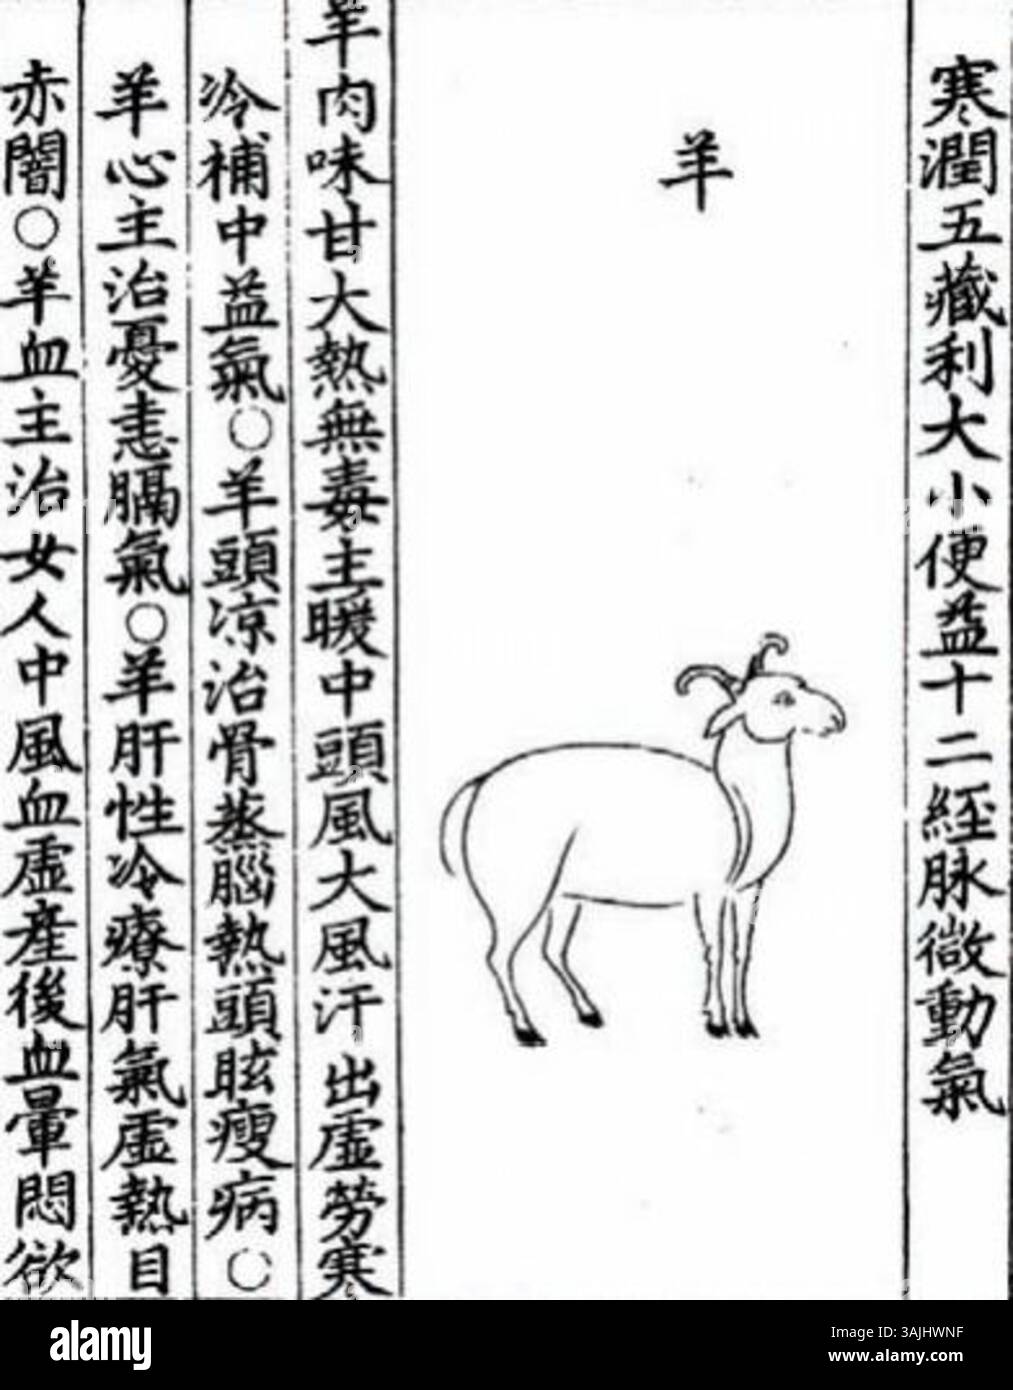 寒潤五藏利大小便益十二經脉微動氣
羊
羊肉味甘大熱無毒主暖中頭風大風汗出虛勞寒
冷補中益氣○羊頭凉治骨蒸腦熱頭眩瘦病○
羊心主治憂恚膈氣○羊肝性冷療肝氣虛熱目
赤闇○羊血主治女人中風血虛產後血暈悶欲
alamy
Image ID: 3AJHWNF
www.alamy.com